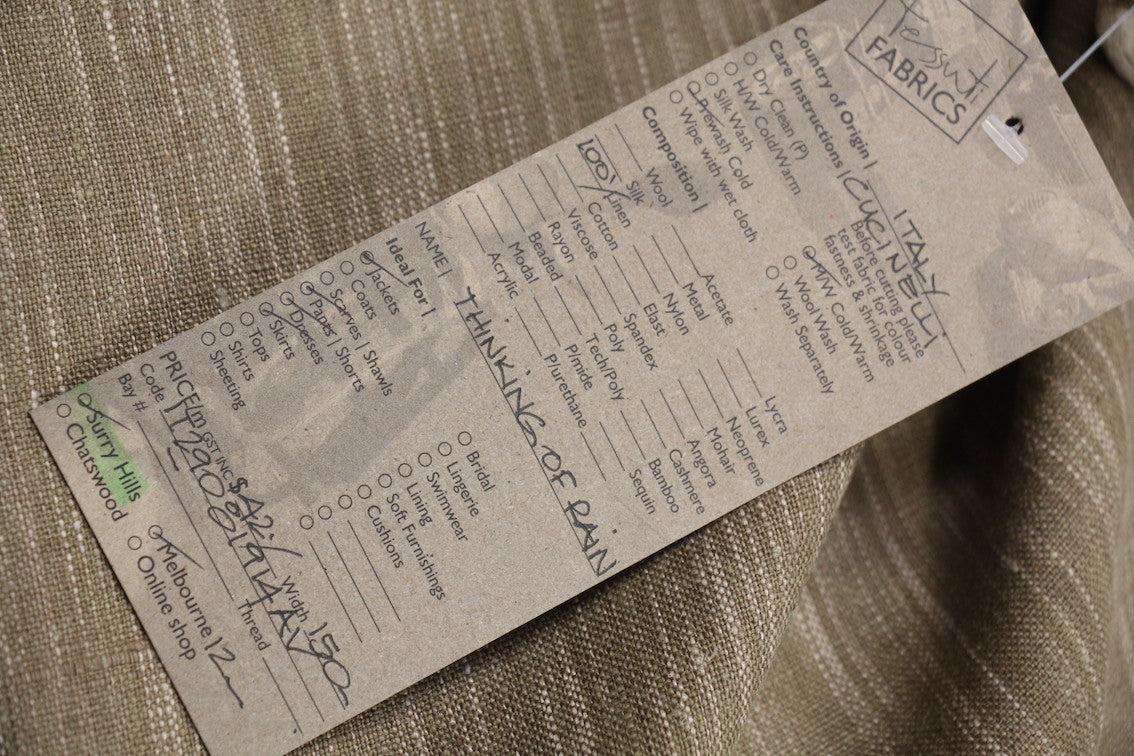 Tessuti
FABRICS
Country of Origin | ITALY
Care Instructions | CUCINELLI
Dry Clean (P)
H/W Cold/Warm
Silk Wash
Prewash Cold
Wipe with wet cloth
Before cutting please
test fabric for colour
fastness & shrinkage
M/W Cold/Warm
Wool Wash
Wash Separately
Composition |
Wool
Silk
100% Linen
Cotton
Viscose
Rayon
Beaded
Modal
Acrylic
Acetate
Metal
Nylon
Elast
Spandex
Poly
Tech/Poly
P/mide
P/urethane
Lycra
Lurex
Neoprene
Mohair
Angora
Cashmere
Bamboo
Sequin
NAME | THINKING OF RAIN
Ideal For |
Jackets
Coats
Scarves | Shawls
Pants | Shorts
Dresses
Skirts
Tops
Shirts
Sheeting
Bridal
Lingerie
Swimwear
Lining
Soft Furnishings
Cushions
PRICE/m GST INC $A2 Width 150
Code
Bay # Thread
Surry Hills
Chatswood
Melbourne 12m
Online shop